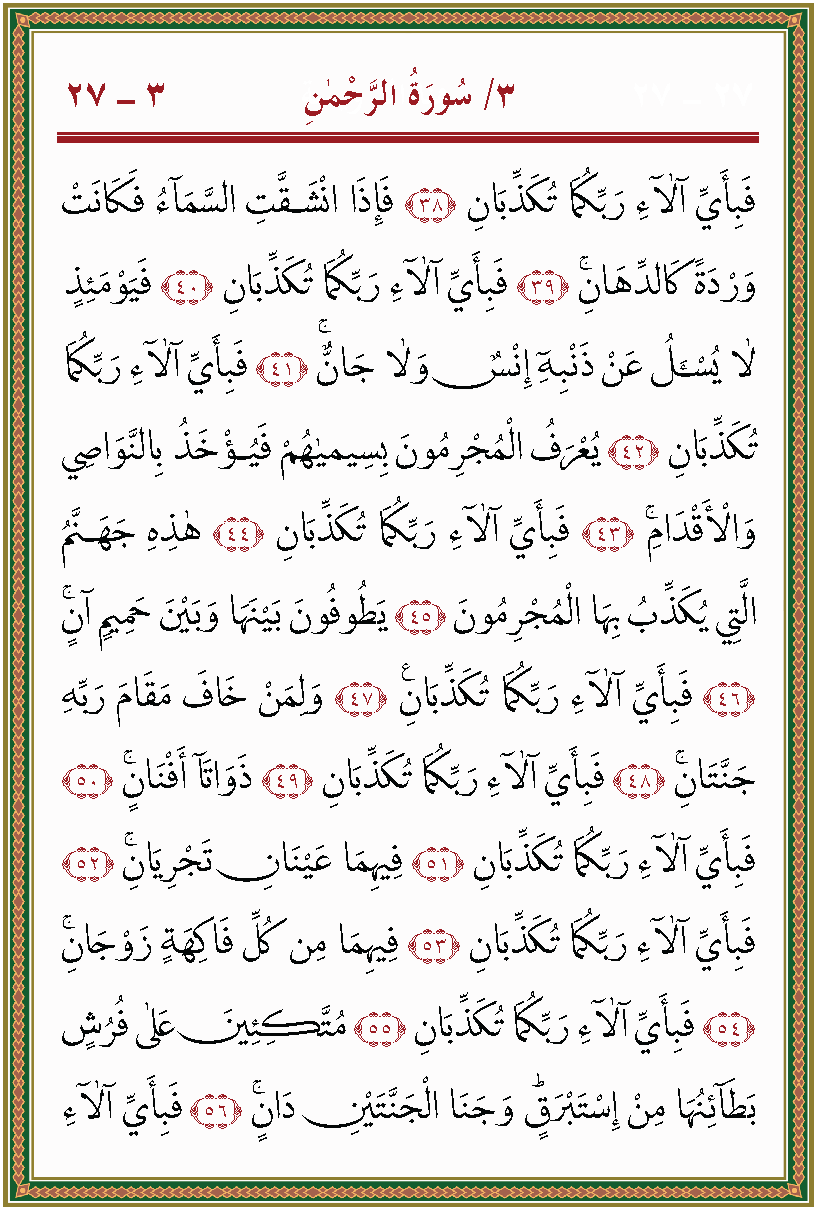 ٣/ سُورَةُ الرَّحْمٰنِ ٣ ـ ٢٧
فَبِأَيِّ آلَاۤءِ رَبِّكُمَا تُكَذِّبَانِ ﴿٣٨﴾ فَإِذَا انْشَقَّتِ السَّمَآءُ فَكَانَتْ
وَرْدَةً كَالدِّهَانِۚ ﴿٣٩﴾ فَبِأَيِّ آلَاۤءِ رَبِّكُمَا تُكَذِّبَانِ ﴿٤٠﴾ فَيَوْمَئِذٍ
لَا يُسْـَٔلُ عَنْ ذَنْبِهِٓ إِنْسٌ وَلَا جَآنٌّۚ ﴿٤١﴾ فَبِأَيِّ آلَاۤءِ رَبِّكُمَا
تُكَذِّبَانِ ﴿٤٢﴾ يُعْرَفُ الْمُجْرِمُونَ بِسِيمٰيهُمْ فَيُؤْخَذُ بِالنَّوَاصِي
وَالْأَقْدَامِۚ ﴿٤٣﴾ فَبِأَيِّ آلَاۤءِ رَبِّكُمَا تُكَذِّبَانِ ﴿٤٤﴾ هٰذِهِ جَهَنَّمُ
الَّتِي يُكَذِّبُ بِهَا الْمُجْرِمُونَ ﴿٤٥﴾ يَطُوفُونَ بَيْنَهَا وَبَيْنَ حَمِيمٍ آنٍۚ
﴿٤٦﴾ فَبِأَيِّ آلَاۤءِ رَبِّكُمَا تُكَذِّبَانِ ﴿٤٧﴾ وَلِمَنْ خَافَ مَقَامَ رَبِّهِ
جَنَّتَانِۚ ﴿٤٨﴾ فَبِأَيِّ آلَاۤءِ رَبِّكُمَا تُكَذِّبَانِ ﴿٤٩﴾ ذَوَاتَآ أَفْنَانٍۚ ﴿٥٠﴾
فَبِأَيِّ آلَاۤءِ رَبِّكُمَا تُكَذِّبَانِ ﴿٥١﴾ فِيهِمَا عَيْنَانِ تَجْرِيَانِۚ ﴿٥٢﴾
فَبِأَيِّ آلَاۤءِ رَبِّكُمَا تُكَذِّبَانِ ﴿٥٣﴾ فِيهِمَا مِن كُلِّ فَاكِهَةٍ زَوْجَانِۚ
﴿٥٤﴾ فَبِأَيِّ آلَاۤءِ رَبِّكُمَا تُكَذِّبَانِ ﴿٥٥﴾ مُتَّكِئِينَ عَلٰى فُرُشٍ
بَطَآئِنُهَا مِنْ إِسْتَبْرَقٍ وَجَنَا الْجَنَّتَيْنِ دَانٍۚ ﴿٥٦﴾ فَبِأَيِّ آلَاۤءِ